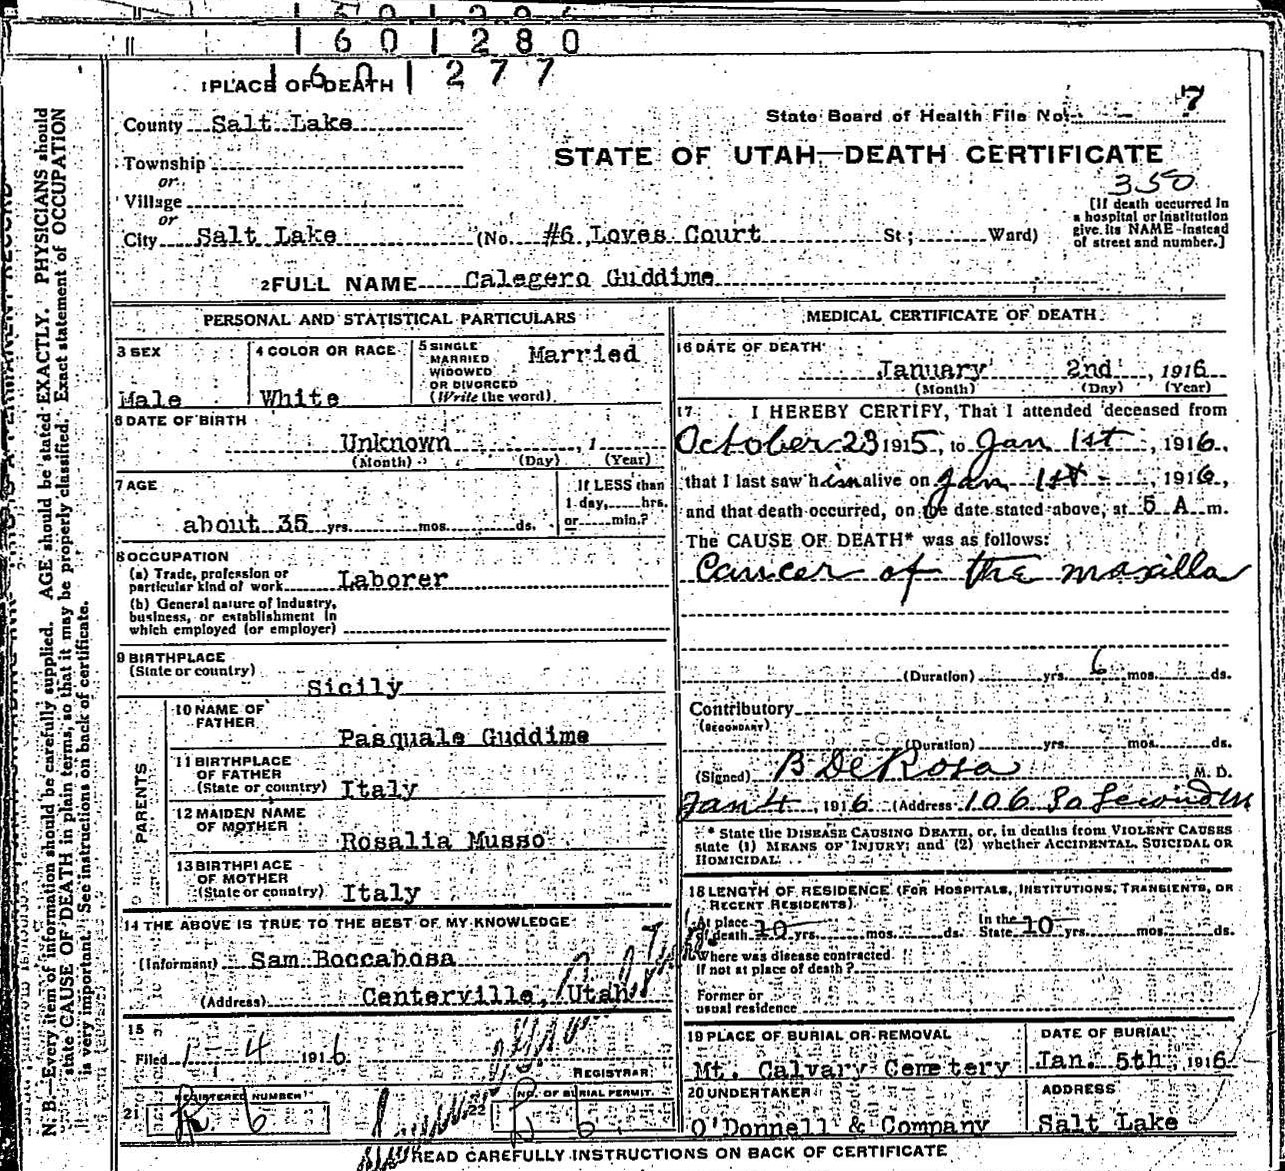 1601280
1601277
1 PLACE OF DEATH
State Board of Health File No. 7
County Salt Lake
STATE OF UTAH—DEATH CERTIFICATE
Township
or
350
Village
or
[If death occurred in
a hospital or institution
give its NAME instead
of street and number.]
City Salt Lake (No. #6 Loves Court St; Ward)
2 FULL NAME Calegero Guddime
PERSONAL AND STATISTICAL PARTICULARS
3 SEX Male
4 COLOR OR RACE White
5 SINGLE
MARRIED
WIDOWED
OR DIVORCED
(Write the word) Married
6 DATE OF BIRTH
Unknown , 1
(Month) (Day) (Year)
7 AGE
about 35 yrs. mos. ds.
If LESS than
1 day, hrs.
or min.?
8 OCCUPATION
(a) Trade, profession or
particular kind of work Laborer
(b) General nature of Industry,
business, or establishment in
which employed (or employer)
9 BIRTHPLACE
(State or country)
Sicily
PARENTS
10 NAME OF
FATHER
Pasquale Guddime
11 BIRTHPLACE
OF FATHER
(State or country) Italy
12 MAIDEN NAME
OF MOTHER
Rosalia Musso
13 BIRTHPLACE
OF MOTHER
(State or country) Italy
14 THE ABOVE IS TRUE TO THE BEST OF MY KNOWLEDGE
(Informant) Sam Boccabosa
(Address) Centerville, Utah
15
Filed 1-4 1916
REGISTRAR
21 REGISTERED NUMBER
R 6
22 NO. OF BURIAL PERMIT
R 6
MEDICAL CERTIFICATE OF DEATH
16 DATE OF DEATH
January 2nd , 1916
(Month) (Day) (Year)
17 I HEREBY CERTIFY, That I attended deceased from
October 23 1915, to Jan 1st, 1916,
that I last saw him alive on Jan 1st, 1916,
and that death occurred, on the date stated above, at 5 A m.
The CAUSE OF DEATH* was as follows:
Cancer of the maxilla
(Duration) yrs. 6 mos. ds.
Contributory
(SECONDARY)
(Duration) yrs. mos. ds.
(Signed) B DeRosa M. D.
Jan 4, 1916 (Address 106 So Second W
* State the DISEASE CAUSING DEATH, or, in deaths from VIOLENT CAUSES
state (1) MEANS OF INJURY; and (2) whether ACCIDENTAL, SUICIDAL OR
HOMICIDAL.
18 LENGTH OF RESIDENCE (FOR HOSPITALS, INSTITUTIONS, TRANSIENTS, OR
RECENT RESIDENTS).
At place
of death 10 yrs. mos. ds.
In the
State 10 yrs. mos. ds.
Where was disease contracted
if not at place of death?
Former or
usual residence
19 PLACE OF BURIAL OR REMOVAL
Mt. Calvary Cemetery
DATE OF BURIAL
Jan. 5th, 1916
20 UNDERTAKER
O'Donnell & Company
ADDRESS
Salt Lake
READ CAREFULLY INSTRUCTIONS ON BACK OF CERTIFICATE
N. B.—Every item of information should be carefully supplied. AGE should be stated EXACTLY. PHYSICIANS should
state CAUSE OF DEATH in plain terms, so that it may be properly classified. Exact statement of OCCUPATION
is very important. See instructions on back of certificate.